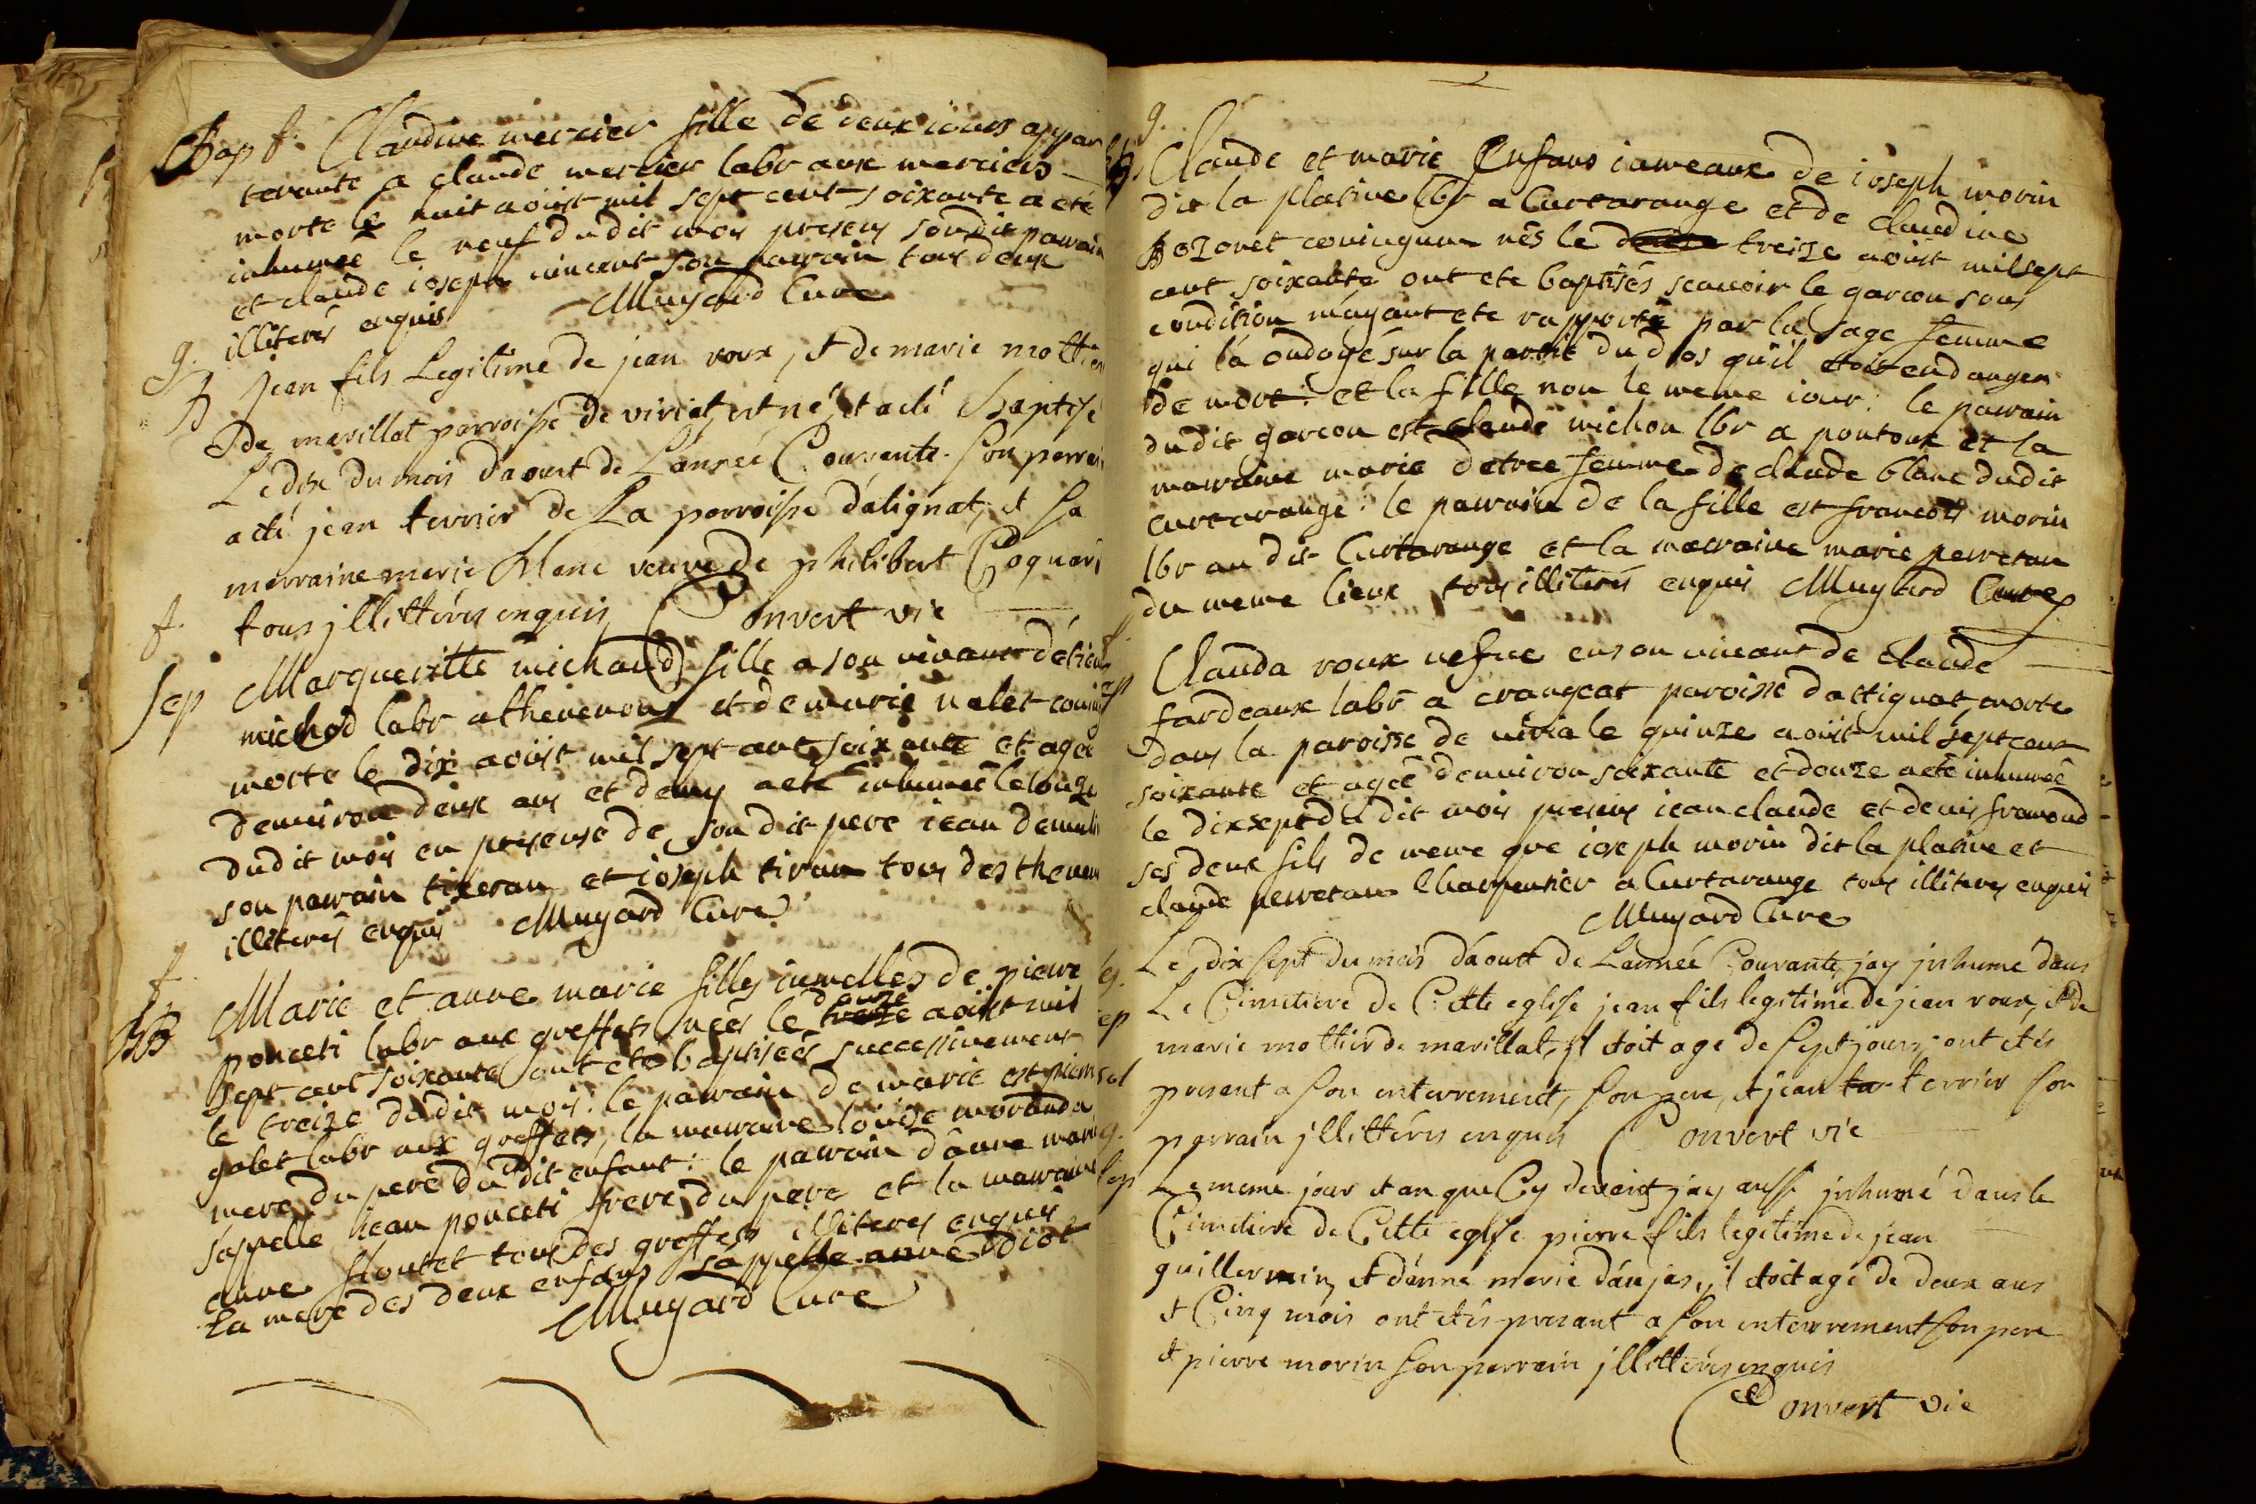 Bap f. Claudine mercier fille de deux iours appar
tenante a claude mercier labr aux merciers
morte le huit aoust mil sept cent soixante a eté
inhumeé le neuf dudit mois presens sondit parrain
et claude ioseph vincent son parrain tous deux
illiterés enquis Muyard Curé
g.
B jean fils Legitime de jean roux, et de marie mottier
de marillat parroisse de viriat est né, et a eté baptisé
Le dix du mois daoust de Lannée Courante. Son perrein
a eté jean terrier de La parroisse dátignat, et sa
merraine marie blanc veuve de philibert Coquard
tous jllittérés enquis Convert vic
f.
sep Margueritte michaud fille a son vivant détienne
michod labr a thevenon et de marie nalet
morte le dix aoust mil sept cent soixante et ageé
denviron deux ans et demy a eté inhumeé le onze
dudit mois en presense de son dit pere iean
son parrain tixeran et ioseph tiran tous des
illiterés enquis Muyard Curé
f.
BB Marie et anne marie filles iumelles de pierre
ponceti labr aux greffets neés le treize douze aoust mil
sept cent soixante ont eté baptiseés successivement
le treize dudit mois. le parrain de marie est pierre
galet labr aux greffets, la marraine louise moranda
mere du pere du dit enfant: le parrain dánne marie
sáppelle iean ponceti frere du pere et la marraine
anne floutet tous des greffets illiterés enquis
La mere des deux enfans sáppelle anne diot
Muyard Curé
g.
Claude et marie Enfans iumeaux de ioseph morin
dit la platine lbr a Curtarange et de claudine
Bozonet coniugum nés le treize aoust mil sept
cent soixante ont eté baptisés scauoir le garcon sous
condition máyant eté rapporté par la sage femme
qui lá ondoyé sur la partie du dos qu'il etoit en danger
de mort: et la fille non le meme iour: le parrain
dudit garcon est claude michon lbr a pontoux et la
marraine marie detree femme de claude blanc dudit
Curtarange: le parrain de la fille est francois morin
lbr au dit Curtarange et la marraine marie perretan
du meme lieux tous illiterés enquis Muyard Curé
Clauda roux vefue en son viveant de claude
fardeaux labr a crangeat paroisse dattignat, morte
dans la paroisse de viria le quinze aoust mil sept cent
soixante et ageé denviron soixante et douze a eté inhumeé
le dixsept du dit mois presens iean claude et denis
ses deux fils de meme que ioseph morin dit la platine et
claude perretan Charpentier a Curtarange tous illiterés enquis
Muyard Curé
Le dix sept du mois dáoust de Lannée Courante, jay jnhumé dans
Le Cimetiere de Cette eglise jean fils legitime de jean roux, et de
marie mottier de marillat, jl etoit agé de sept jours, ont etés
present a son enterrement, son pere, et jean terrier son
perrain jllittérés enquis Convert vic
Le meme jour et an que Cy devant jay aussi jnhumé dans le
Cimetiere de Cette eglise pierre fils legitime de jean
guillermin, et dánne marie daujas, il etoit agé de deux ans
et Cinq mois ont etés present a son enterrement son pere
et pierre morin son perrain jllittérés enquis
Convert vic